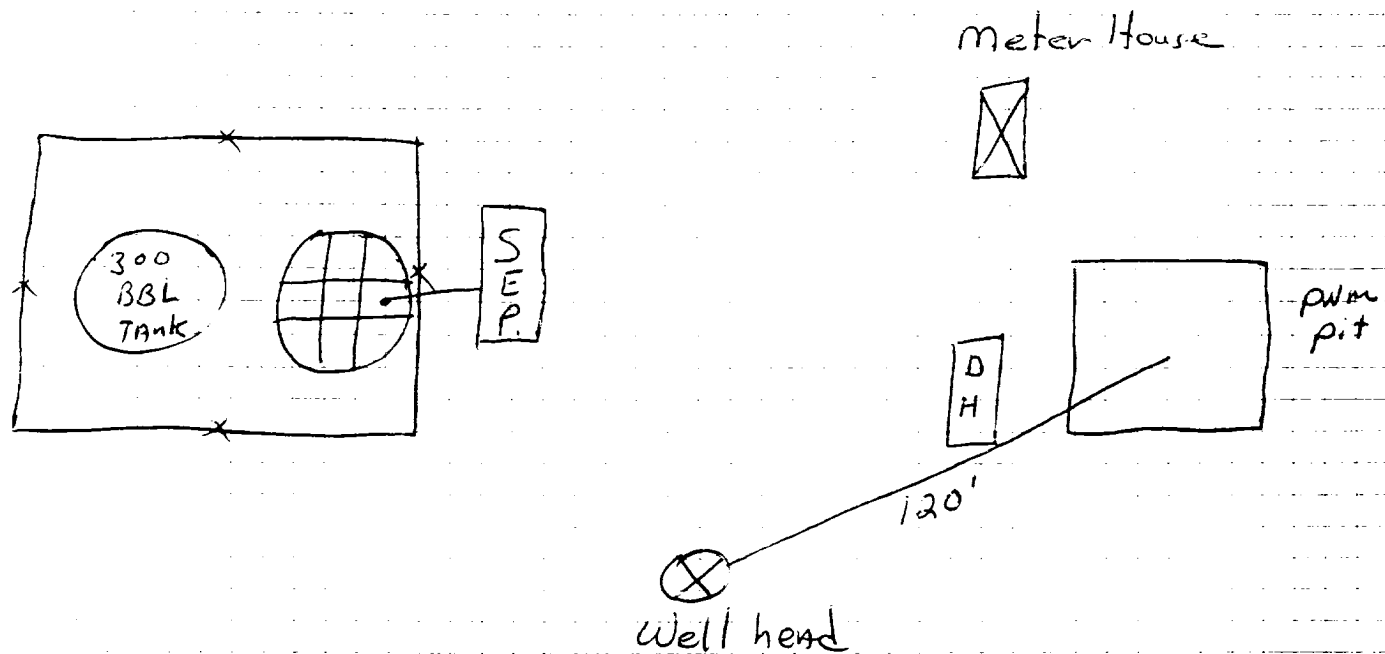 Meter House
300
BBL
TANK
S
E
P.
D
H
PNM
pit
120'
Well head